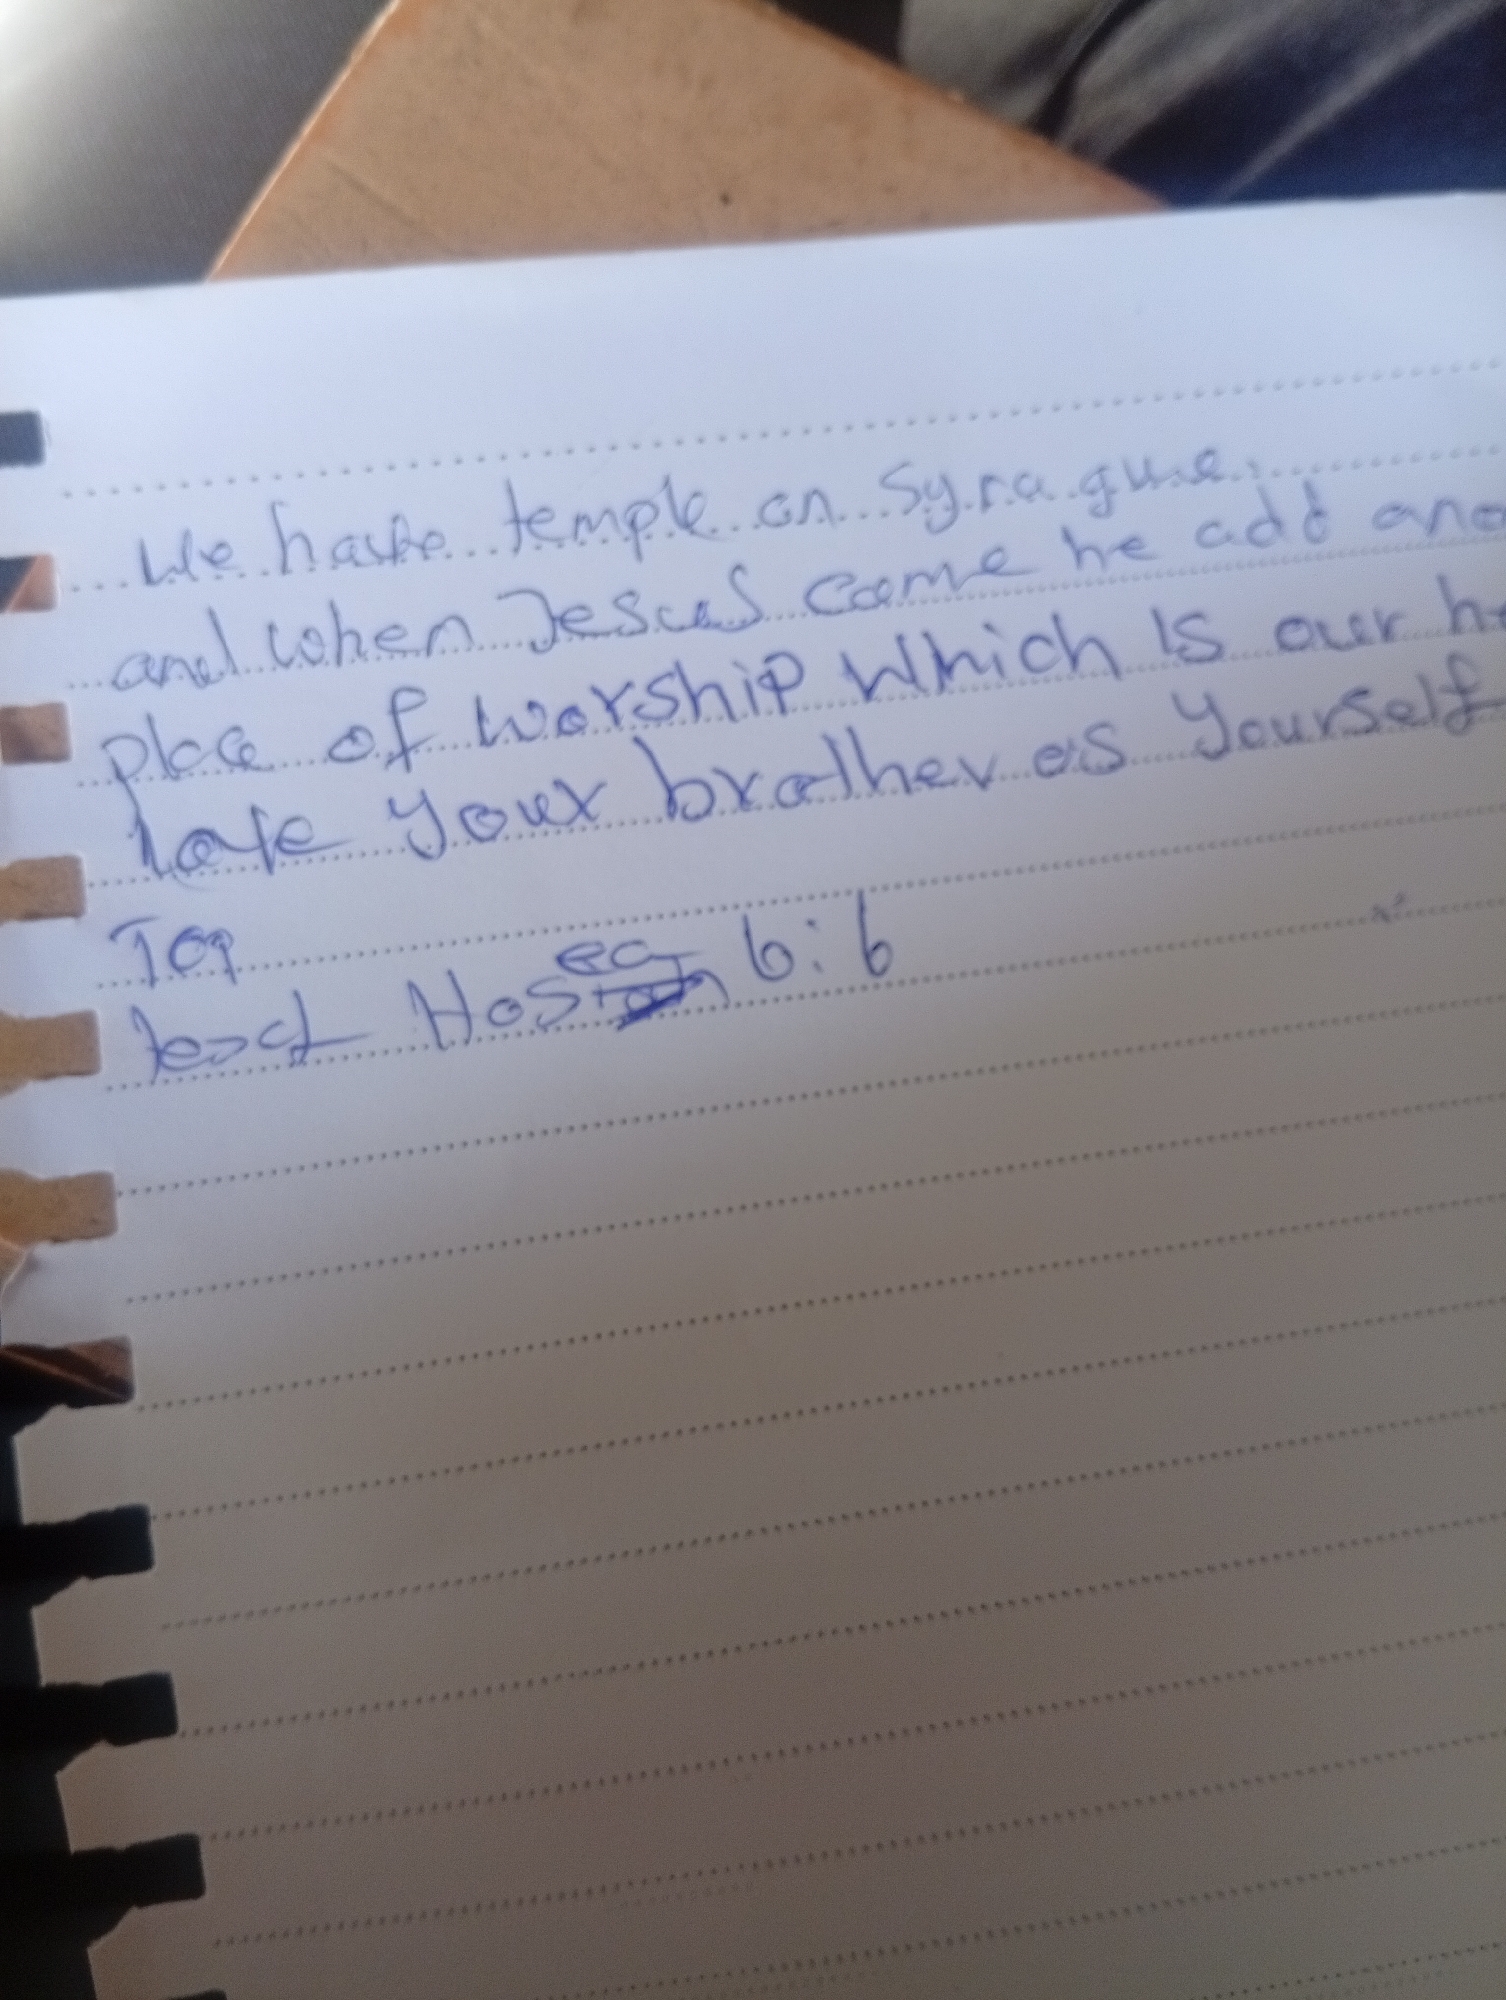 We have temple on Syrague.
and when Jesus came he add
place of worship which is our
love your brother as yourself
Top
Hosea 6:6